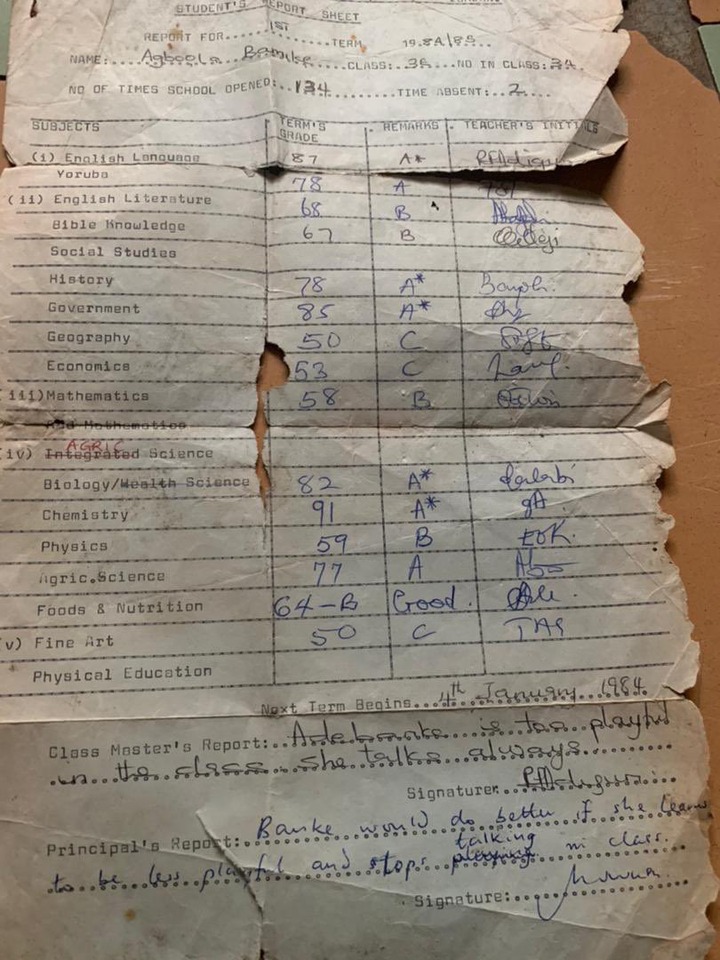 STUDENT'S REPORT SHEET
REPORT FOR....1ST.........TERM 19.84/85..
NAME:....Agboola Banke......CLASS:.3E..NO IN CLASS:34.
NO OF TIMES SCHOOL OPENED:.134.........TIME ABSENT:..2....
SUBJECTS TERM'S GRADE REMARKS TEACHER'S INITIALS
(i) English Language 87 A*
Yoruba 78 A
(ii) English Literature 68 B
Bible Knowledge 67 B
Social Studies
History 78 A*
Government 85 A*
Geography 50 C
Economics 53 C
(iii)Mathematics 58 B
Add Mathematics
AGRIC
(iv) Integrated Science
Biology/Health Science 82 A*
Chemistry 91 A* gA
Physics 59 B EOK.
Agric.Science 77 A
Foods & Nutrition 64-B Good.
(v) Fine Art 50 C
Physical Education
Next Term Begins...4th January 1984
Class Master's Report:..Adebanke is too playful
in the class. she talks always.
Signature:
Principal's Report: Banke would do better if she learns
to be less playful and stops playing talking in class.
Signature: